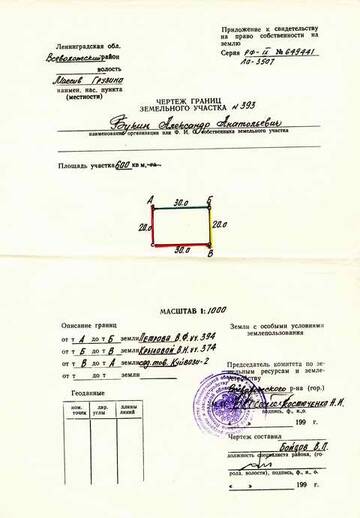 Приложение к свидетельству
на право собственности на
землю
Серия РФ-II № 649441
ЛО-3507
Ленинградская обл.
Всеволожский район
волость
Массив Грузино
наимен. нас. пункта
(местности)
ЧЕРТЕЖ ГРАНИЦ
ЗЕМЕЛЬНОГО УЧАСТКА N 393
Букин Александр Анатольевич
наименование организации или Ф. И. О. собственника земельного участка
Площадь участка 600 кв м,
А 30.0 Б
20.0 20.0
30.0 В
МАСШТАБ 1:1000
Описание границ
от т А до т Б земли Петрова В.Ф. уч. 394
от т Б до т В земли уч. 374
от т В до т А земли сад. тов. Куйвози-2
от т до т земли
Геоданные
ном. точек дир. углы длины линий
Земли с особыми условиями
землепользования
Председатель комитета по земельным ресурсам и землеустройству
Всеволожского р-на (гор.)
Костюченко А.И.
подпись, ф., и., о.
« » 199 г.
Чертеж составил
Бойдов В.П.
должность специалиста района, (города, волости), подпись, ф., и., о.
« » 199 г.